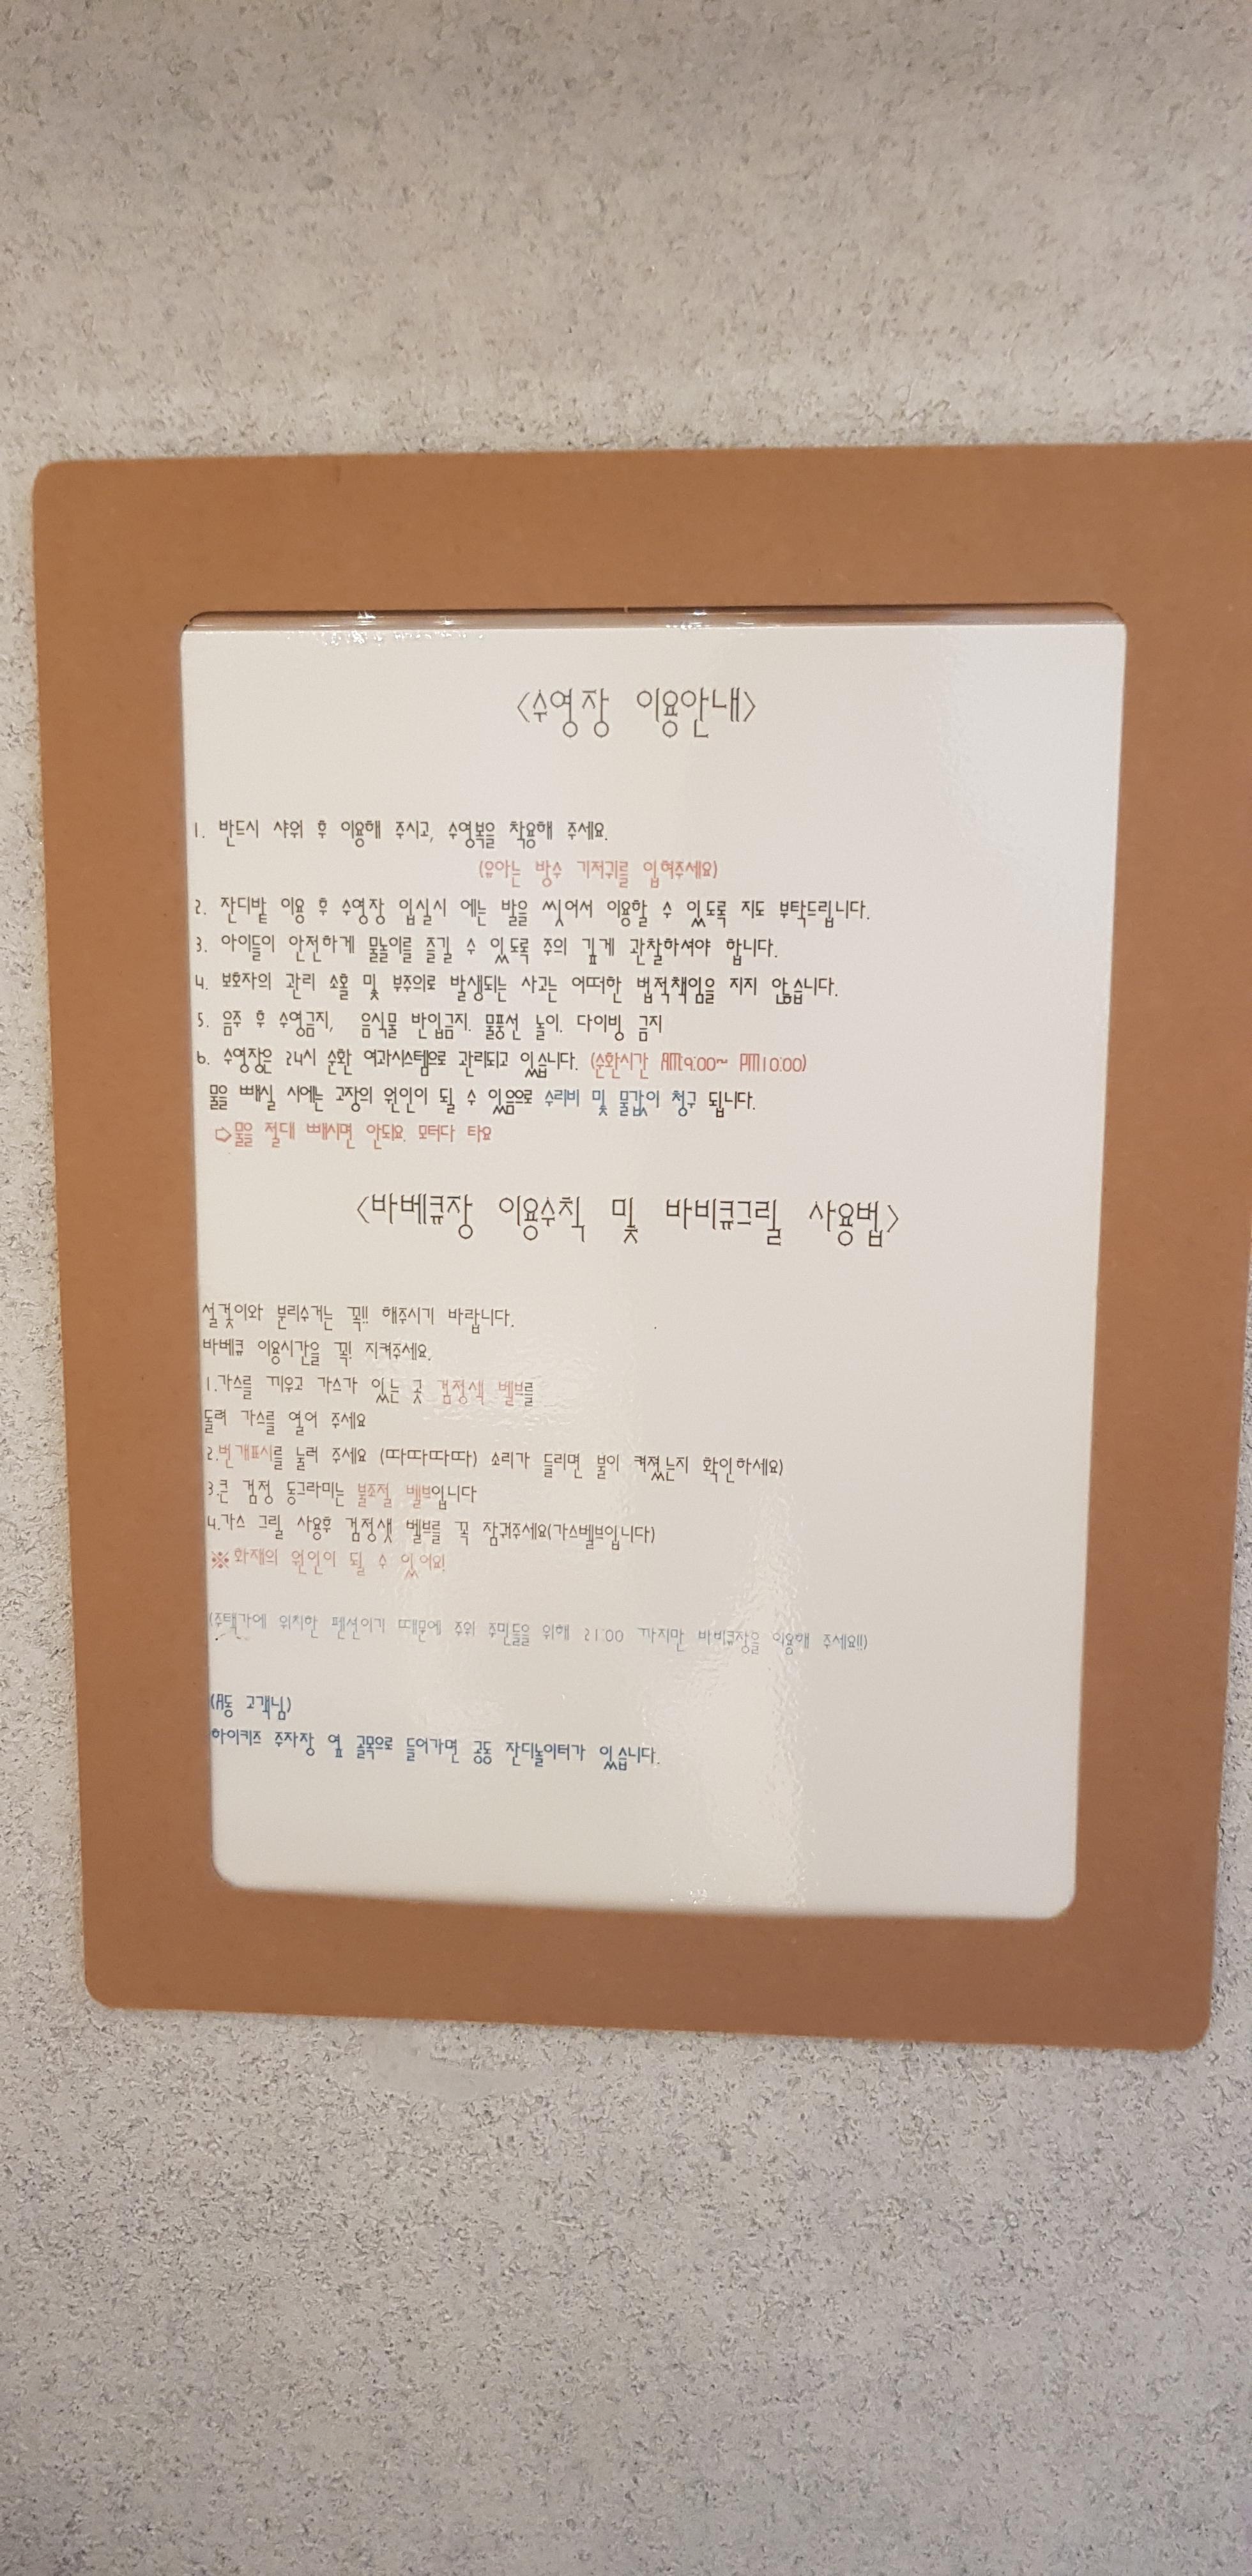 <수영장 이용안내>
1. 반드시 샤워 후 이용해 주시고, 수영복을 착용해 주세요.
(유아는 방수 기저귀를 입혀주세요)
2. 잔디밭 이용 후 수영장 입실시 에는 발을 씻어서 이용할 수 있도록 지도 부탁드립니다.
3. 아이들이 안전하게 물놀이를 즐길 수 있도록 주의 깊게 관찰하셔야 합니다.
4. 보호자의 관리 소홀 및 부주의로 발생되는 사고는 어떠한 법적책임을 지지 않습니다.
5. 음주 후 수영금지, 음식물 반입금지. 물풍선 놀이. 다이빙 금지
6. 수영장은 24시 순환 여과시스템으로 관리되고 있습니다. (순환시간 AM9:00~ PM10:00)
물을 빼실 시에는 고장의 원인이 될 수 있음으로 수리비 및 물값이 청구 됩니다.
➩물을 절대 빼시면 안되요. 모터다 타요
<바베큐장 이용수칙 및 바비큐그릴 사용법>
설겆이와 분리수거는 꼭!! 해주시기 바랍니다.
바베큐 이용시간을 꼭! 지켜주세요.
1.가스를 끼우고 가스가 있는 곳 검정색 벨브를
돌려 가스를 열어 주세요
2.번개표시를 눌러 주세요 (따따따따) 소리가 들리면 불이 켜졌는지 확인하세요)
3.큰 검정 동그라미는 불조절 벨브입니다
4.가스 그릴 사용후 검정색 벨브를 꼭 잠궈주세요(가스벨브입니다)
※화재의 원인이 될 수 있어요!
(주택가에 위치한 펜션이기 때문에 주위 주민들을 위해 21:00 까지만 바비큐장을 이용해 주세요!!)
(A동 고객님)
하이키즈 주자장 옆 골목으로 들어가면 공동 잔디놀이터가 있습니다.